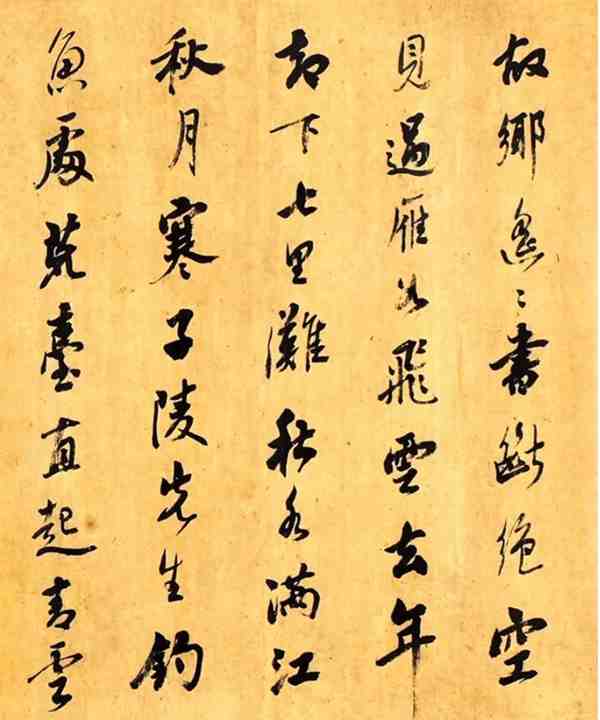 故鄉遙〻書斷絕空
見過雁如飛雲去年
却下七里灘秋水滿江
秋月寒子陵先生釣
魚處荒臺直起青雲